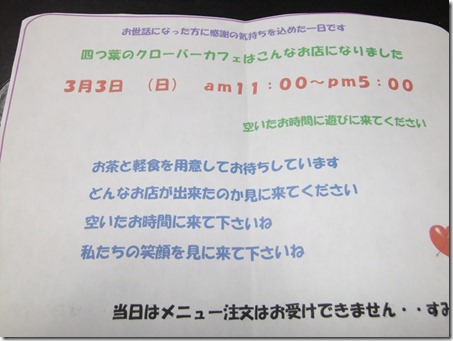 お世話になった方に感謝の気持ちを込めた一日です
四つ葉のクローバーカフェはこんなお店になりました
3月3日　(日)　am11：00～pm5：00
空いたお時間に遊びに来てください
お茶と軽食を用意してお待ちしています
どんなお店が出来たのか見に来てください
空いたお時間に来て下さいね
私たちの笑顔を見に来て下さいね
当日はメニュー注文はお受けできません・・すみ